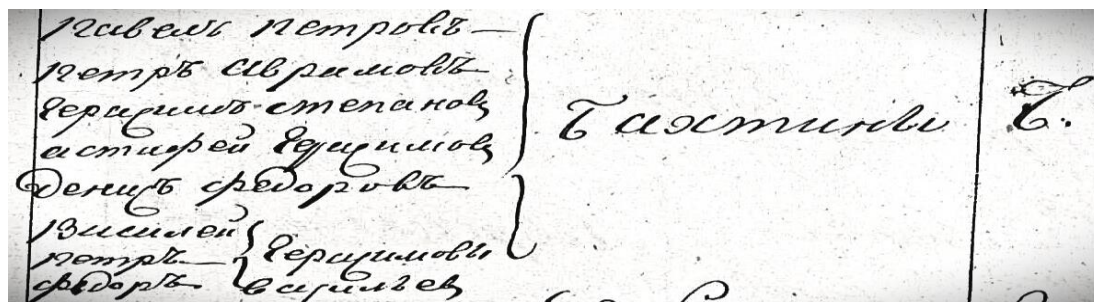 Павелъ Петровъ
Петръ Аврамовъ
Герасимъ Степановъ
Астафей Герасимовъ
Денисъ Федоровъ
Василей
Петръ Герасимовы
Федоръ Васильев